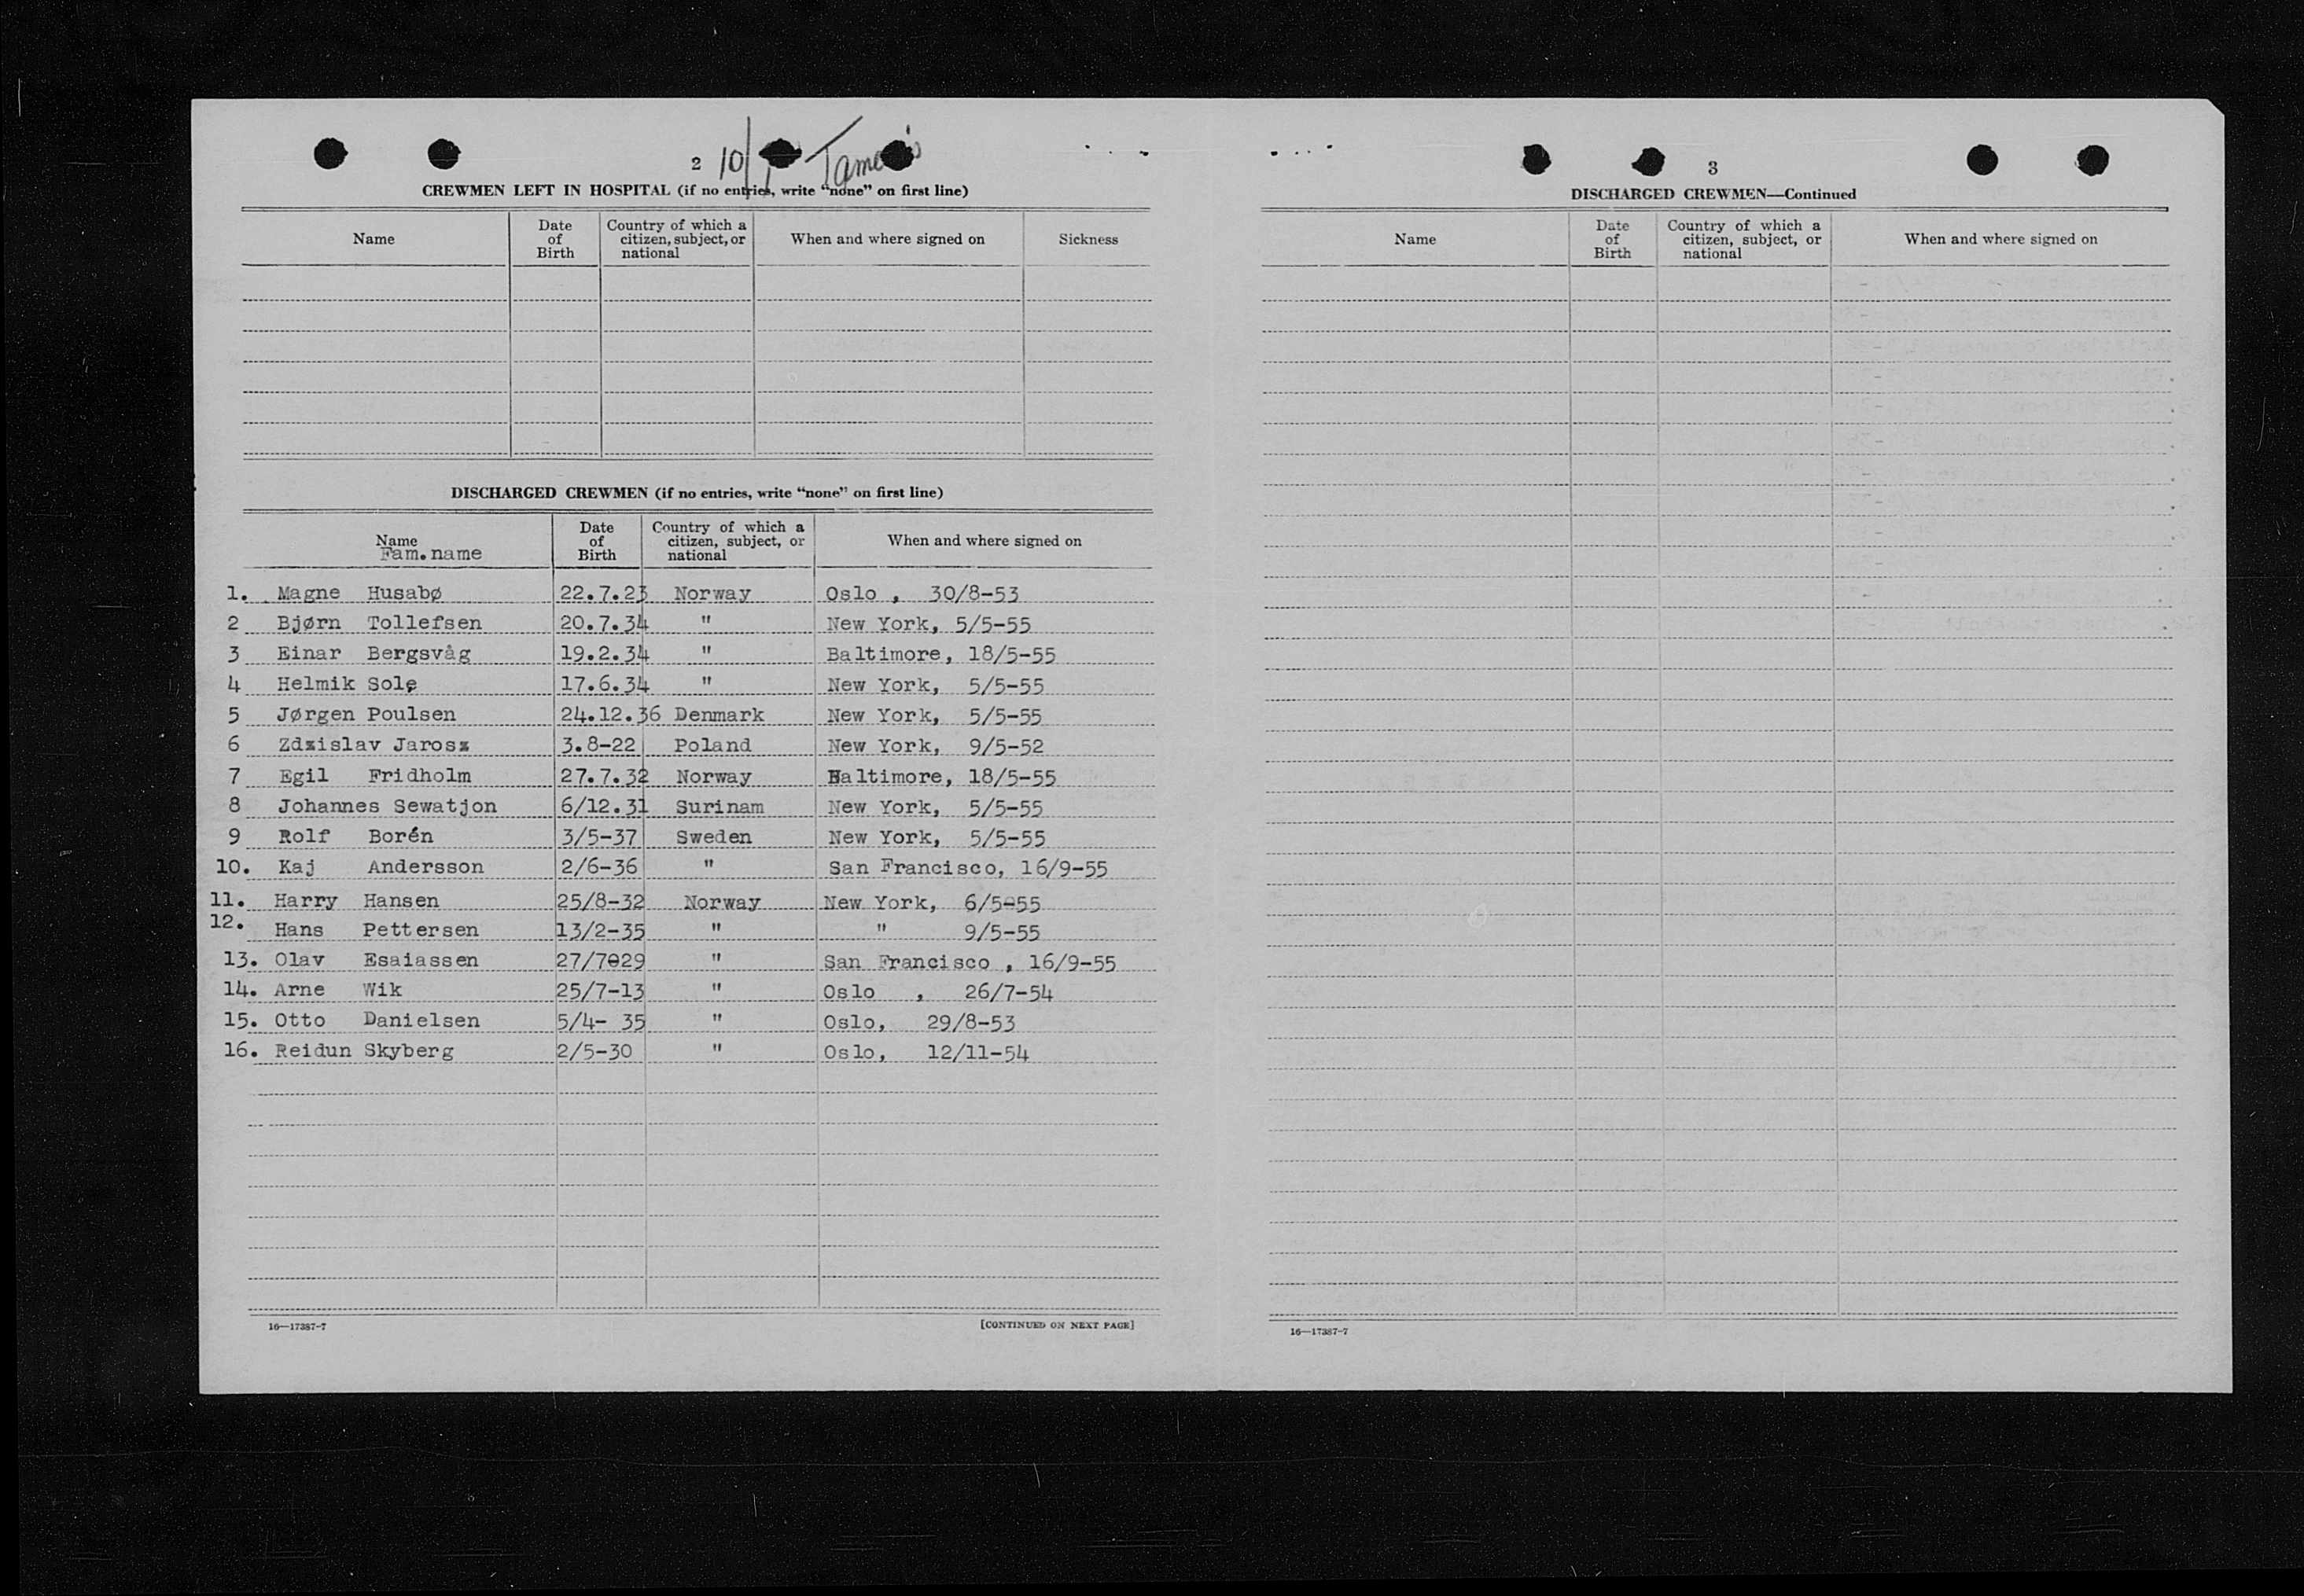 2 10/
CREWMEN LEFT IN HOSPITAL (if no entries, write "none" on first line)
Name Date of Birth Country of which a citizen, subject, or national When and where signed on Sickness
DISCHARGED CREWMEN (if no entries, write "none" on first line)
Name Fam. name Date of Birth Country of which a citizen, subject, or national When and where signed on
1. Magne Husabø 22.7.23 Norway Oslo , 30/8-53
2 Bjørn Tollefsen 20.7.34 " New York, 5/5-55
3 Einar Bergsvåg 19.2.34 " Baltimore, 18/5-55
4 Helmik Sole 17.6.34 " New York, 5/5-55
5 Jørgen Poulsen 24.12.36 Denmark New York, 5/5-55
6 Zdzislav Jarosz 3.8-22 Poland New York, 9/5-52
7 Egil Fridholm 27.7.32 Norway Baltimore, 18/5-55
8 Johannes Sewatjon 6/12.31 Surinam New York, 5/5-55
9 Rolf Borén 3/5-37 Sweden New York, 5/5-55
10. Kaj Andersson 2/6-36 " San Francisco, 16/9-55
11. Harry Hansen 25/8-32 Norway New York, 6/5-55
12. Hans Pettersen 13/2-35 " " 9/5-55
13. Olav Esaiassen 27/7-29 " San Francisco , 16/9-55
14. Arne Wik 25/7-13 " Oslo , 26/7-54
15. Otto Danielsen 5/4- 35 " Oslo, 29/8-53
16. Reidun Skyberg 2/5-30 " Oslo, 12/11-54
16—17387-7 [CONTINUED ON NEXT PAGE]
3
DISCHARGED CREWMEN—Continued
Name Date of Birth Country of which a citizen, subject, or national When and where signed on
16—17387-7